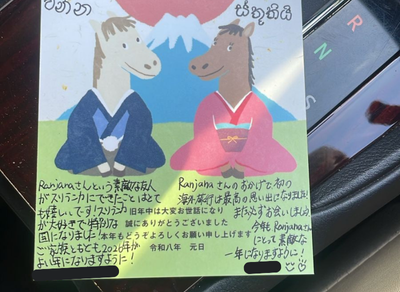 ස්තුතියි
Ranjanaさんという素敵な友人
がスリランカにできたことはとて
も嬉しいです!スリランカ
が大好きで特別な
国になりました!
ご家族ともども2026年が
よい年になりますように!
旧年中は大変お世話になり
誠にありがとうございました
本年もどうぞよろしくお願い申し上げます
令和八年 元日
Ranjanaさんのおかげで初の
海外旅行は最高の思い出になりました!
また必ずお会いしましょう
今年もRanjanaさん
にとって素敵な
一年になりますように!
R
N
S